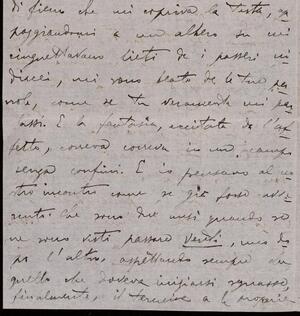 di fieno che mi copriva la testa, ap
poggiandomi a un albero su cui
cinguettavano lieti de i passeri in
mi sono beato de le tue pa
role, come se tu veramente mi par
lassi. E la fantasia, eccitata de l'af
fetto, correva correva in un campo
senza confini. E io pensavo al no
stro incontro come se già fosse avve
nuto: che sono due mesi quando se
ne sono visti passare venti, uno do
po l'altro, aspettando sempre
quello che doveva
finalmente, il termine a le